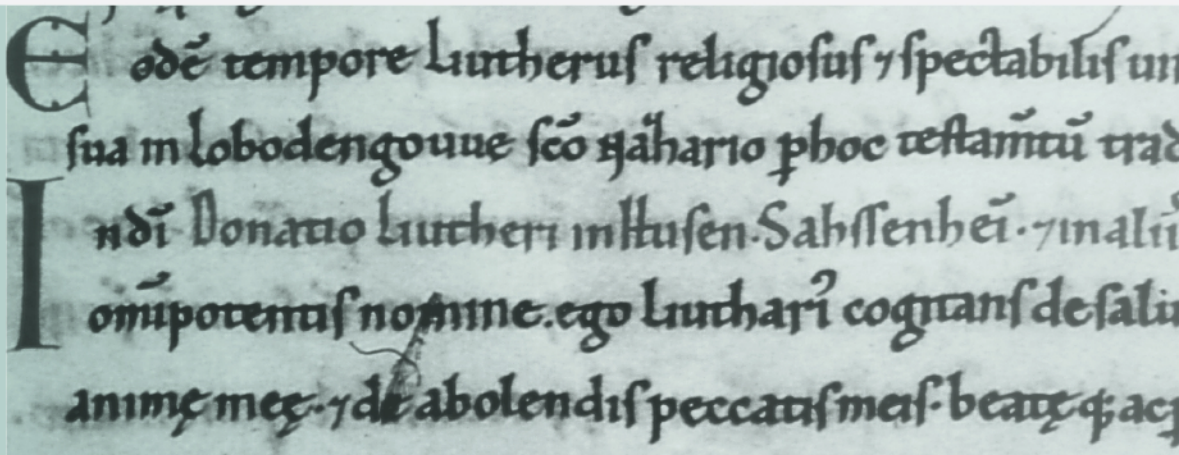 Eodē tempore Liutheruſ religioſuſ ⁊ ſpectabiliſ uir
ſua in lobodengouue ſcō nazhario p̱ hoc teſtam̄tū trad
Indī Donatio liutheri in ltuſen. Sahſſenheī. ⁊ in aliī
om̄ipotentiſ nomine. ego liuthariꝰ cogitanſ de ſalu
animę meę. ⁊ de abolendiſ peccatiſ meiſ. beatę q; ac